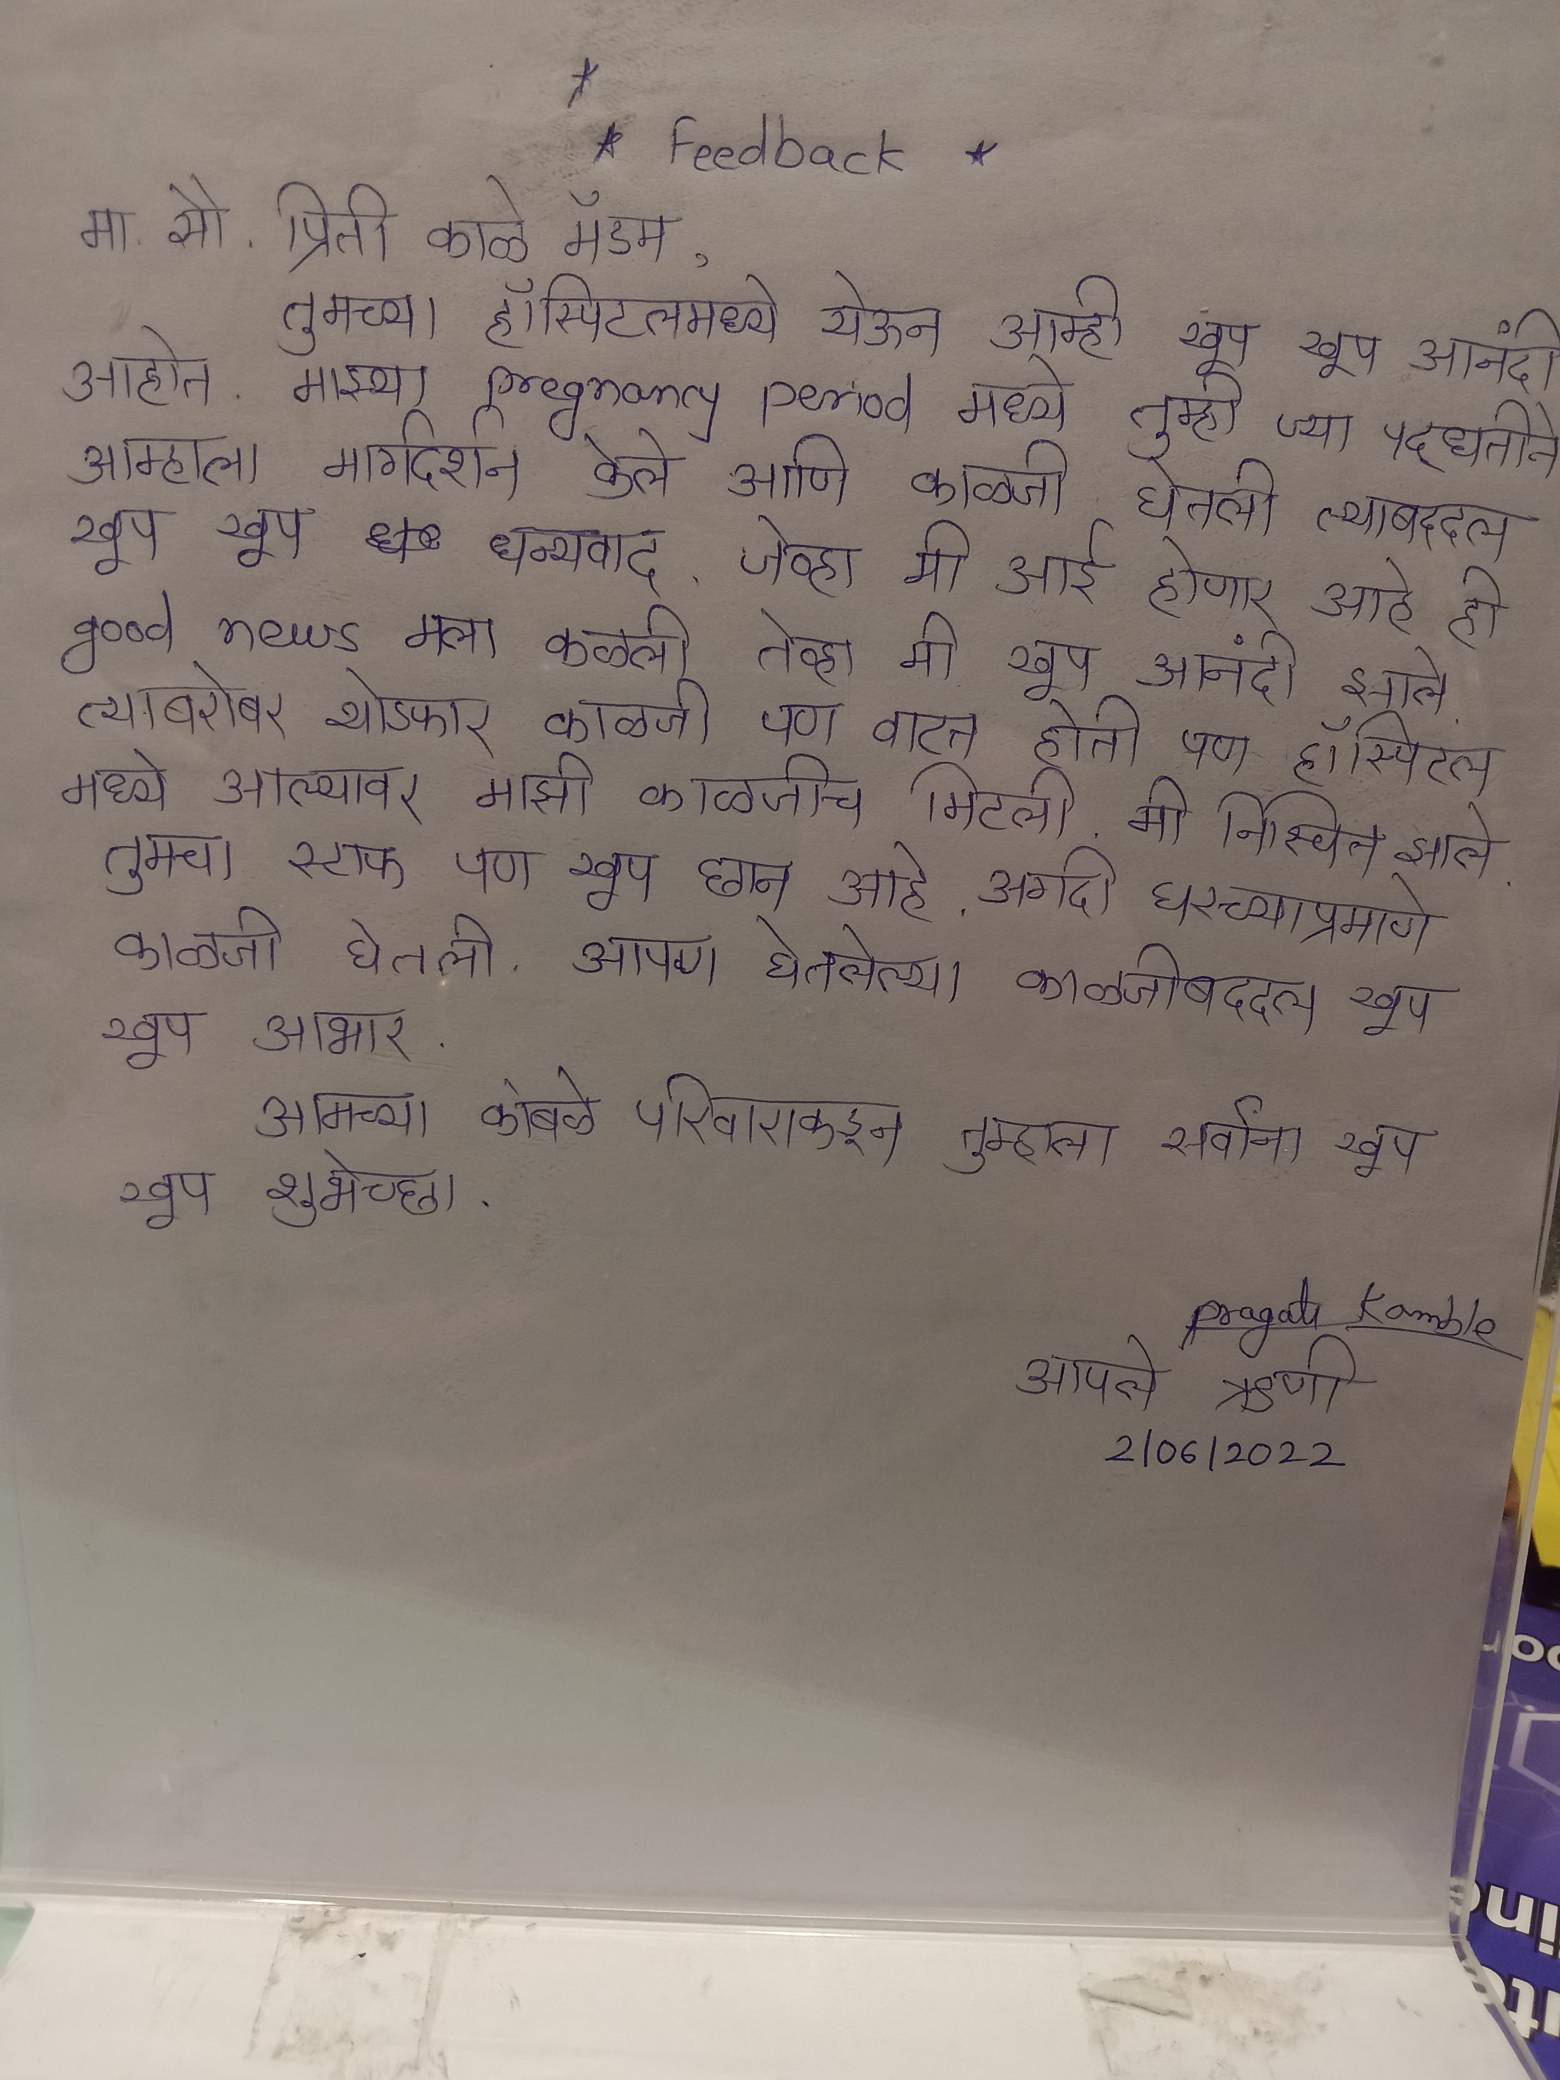 * Feedback *
मा. सौ. प्रिती काळे मॅडम,
तुमच्या हॉस्पिटलमध्ये येऊन आम्ही खूप खूप आनंदी
आहोत. माझ्या pregnancy period मध्ये तुम्ही ज्या पद्धतीने
आम्हाला मार्गदर्शन केले आणि काळजी घेतली त्याबद्दल
खूप खूप धन्यवाद. जेव्हा मी आई होणार आहे ही
good news मला कळली तेव्हा मी खूप आनंदी झाले.
त्याबरोबर थोडफार काळजी पण वाटत होती पण हॉस्पिटल
मध्ये आल्यावर माझी काळजीच मिटली. मी निश्चित झाले.
तुमचा स्टाफ पण खूप छान आहे. अगदी घरच्याप्रमाणे
काळजी घेतली. आपण घेतलेल्या काळजीबद्दल खूप
खूप आभार.
आमच्या कांबळे परिवाराकडून तुम्हाला सर्वांना खूप
खूप शुभेच्छा.
Pragati Kamble
आपले ऋणी
2/06/2022